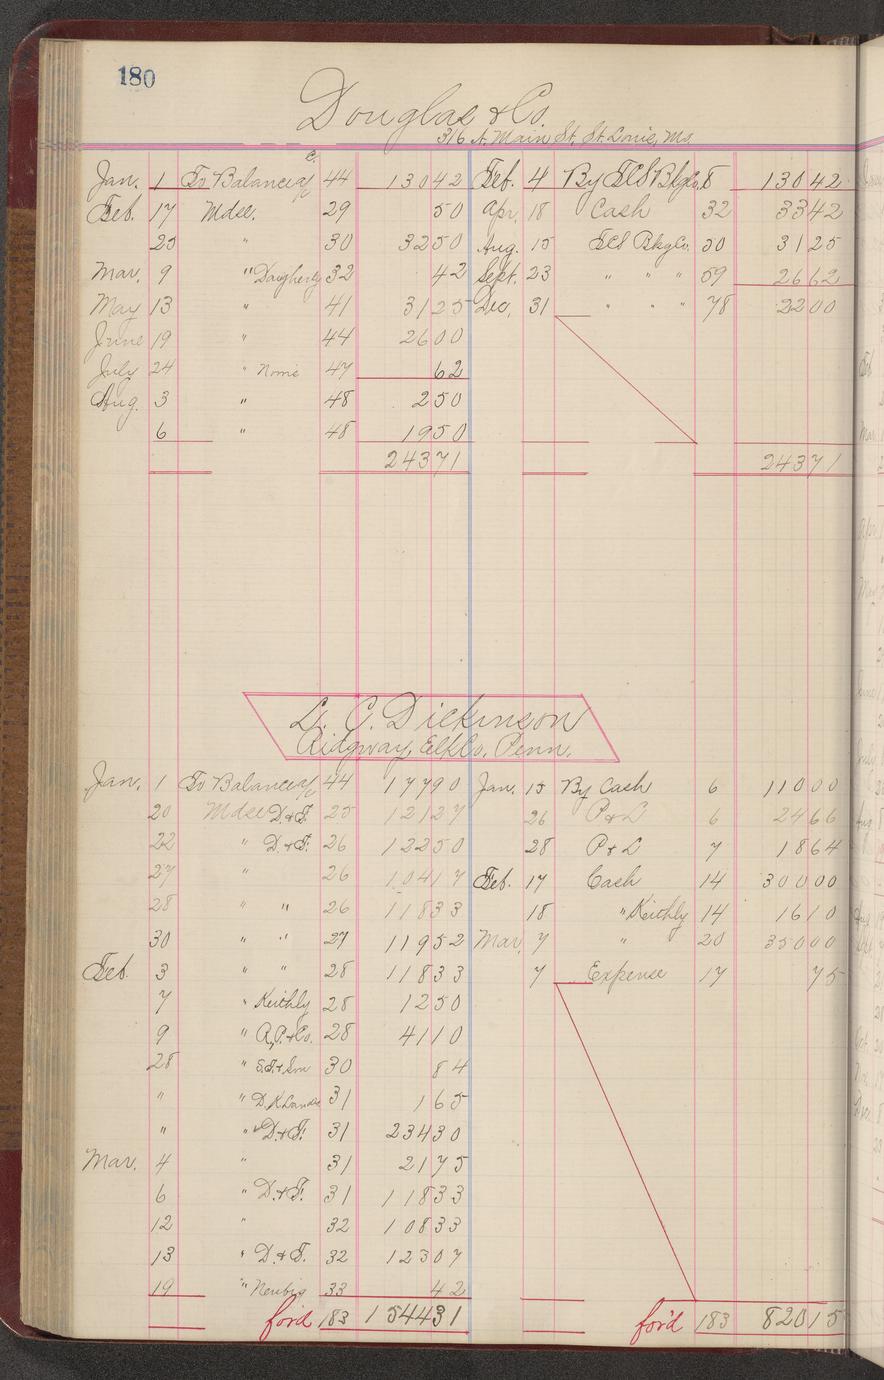 180
Douglas & Co.
316 N. Main St. St. Louis, Mo.
Jan. 1 To Balance a/c 44 130 42 Feb. 4 By ECS Bkg Co. 8 130 42
Feb. 17 Mdse. 29 50 Apr. 18 Cash 32 33 42
25 " 30 32 50 Aug. 15 ECS Bkg Co. 50 31 25
Mar. 9 " Daugherty 32 42 Sept. 23 " " " 59 26 62
May 13 " 41 31 25 Dec. 31 " " " 78 22 00
June 19 " 44 26 00
July 24 " 47 62
Aug. 3 " 48 2 50
6 " 48 19 50
243 71 243 71
L. C. Dickinson
Ridgway, Elk Co. Penn.
Jan. 1 To Balance a/c 44 177 90 Jan. 15 By Cash 6 110 00
20 Mdse D.&F. 25 121 27 26 P & L 6 24 66
22 " D.&F. 26 122 50 28 P & L 7 18 64
27 " 26 104 17 Feb. 17 Cash 14 300 00
28 " " 26 118 33 18 " Keithly 14 16 10
30 " " 27 119 52 Mar. 7 " 20 350 00
Feb. 3 " " 28 118 33 7 Expense 17 75
7 " Keithly 28 12 50
9 " A.P. & Co. 28 41 10
28 " S.F. & Son 30 84
" " D.K. 31 1 65
" " " D.&F. 31 234 30
Mar. 4 " 31 21 75
6 " D.&F. 31 118 33
12 " 32 108 33
13 " D.&F. 32 123 07
19 " 33 42
for'd 183 1544 31 for'd 183 820 15